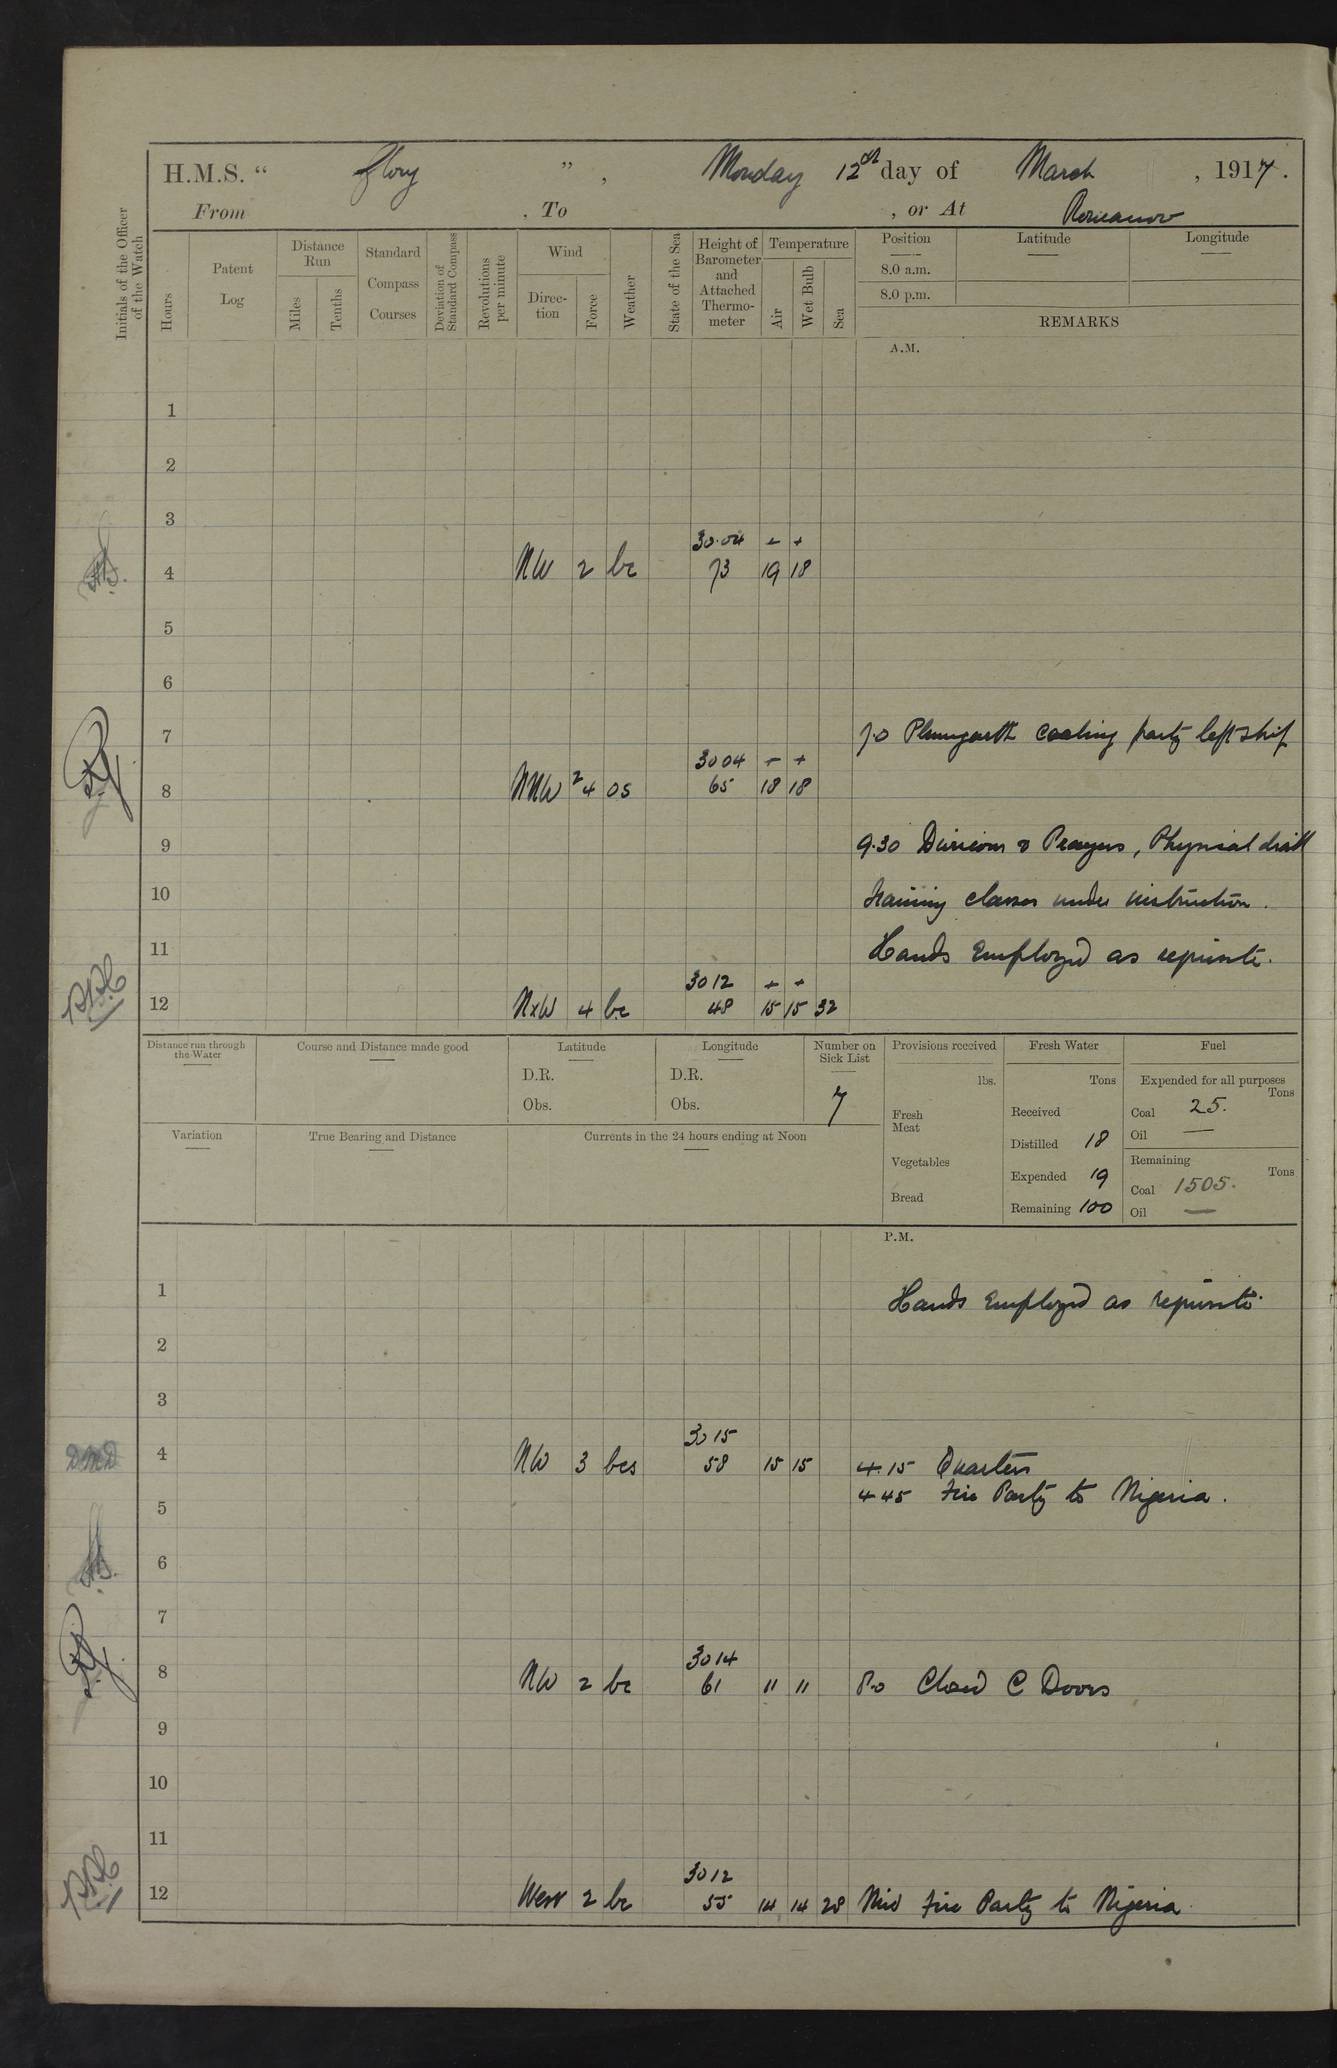 H.M.S. " Glory " , Monday 12th day of March , 1917.
From , To , or At Romanov
Initials of the Officer of the Watch
Hours
Patent Log
Distance Run
Miles
Tenths
Standard Compass Courses
Deviation of Standard Compass
Revolutions per minute
Wind
Direc-tion
Force
Weather
State of the Sea
Height of Barometer and Attached Thermo-meter
Temperature
Air
Wet Bulb
Sea
Position
Latitude
Longitude
8.0 a.m.
8.0 p.m.
REMARKS
A.M.
1
2
3
30.04 + +
4 NW 2 bc 73 19 18
5
6
7 7.0 Plumgarth coaling party left ship
3004 + +
8 NNW 2 4 os 65 18 18
9 9.30 Divisions & Prayers, Physical drill
10 training classes under instruction.
11 Hands Employed as requisite.
3012 + +
12 NxW 4 bc 48 15 15 32
Distance run through the Water
Course and Distance made good
Latitude
D.R.
Obs.
Longitude
D.R.
Obs.
Number on Sick List
7
Variation
True Bearing and Distance
Currents in the 24 hours ending at Noon
Provisions received
lbs.
Fresh Meat
Vegetables
Bread
Fresh Water
Tons
Received
Distilled 18
Expended 19
Remaining 100
Fuel
Expended for all purposes
Tons
Coal 25.
Oil —
Remaining
Tons
Coal 1505.
Oil —
P.M.
1 Hands Employed as requisite.
2
3
3015
4 NW 3 bcs 58 15 15 4.15 Quarters
4 45 Fire Party to Nigeria.
5
6
7
3014
8 NW 2 bc 61 " " 8.0 Closed C Doors
9
10
11
3012
12 West 2 bc 55 14 14 28 Mid Fire Party to Nigeria